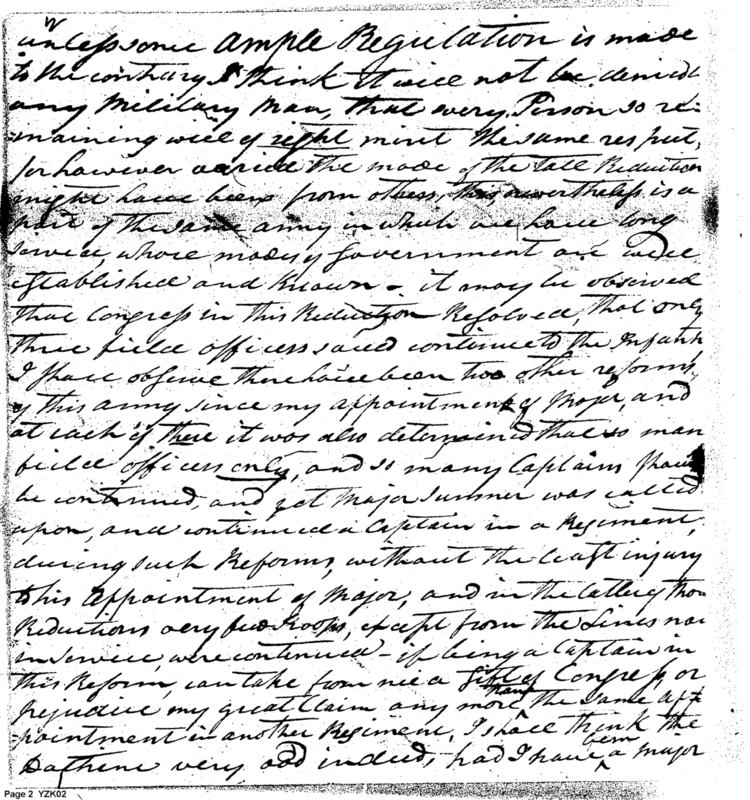 unless some ample Regulation is made
to the contrary I think it will not be denied
any Military Man, that every Person so re-
maining will of right merit the same respect,
for however varied the mode of the late Reduction
might have been from others, this nevertheless is a
part of the same army in which we have long
service, whose modes of Government are well
established and known - it may be observed
that Congress in this Reduction Resolved, that only
three field officers continue to the Infant
I shall observe there have been two other reforms,
of this army since my appointment of Major, and
at each of these it was also determined that so man
field officers only, and so many Captains should
be continued, and yet Major Sumner was called
upon, and continued a Captain in a Regiment,
during such Reforms, without the least injury
to his Appointment of Major, and in the latter of those
Reductions very few Troops, except from the Lines now
in service, were continued - if being a Captain in
this Reform, can take from me a Gift of Congress, or
prejudice my great Claim any more than the same app
pointment in another Regiment, I shall think the
Doctrine very odd indeed, had I have been a Major
Page 2 YZK02